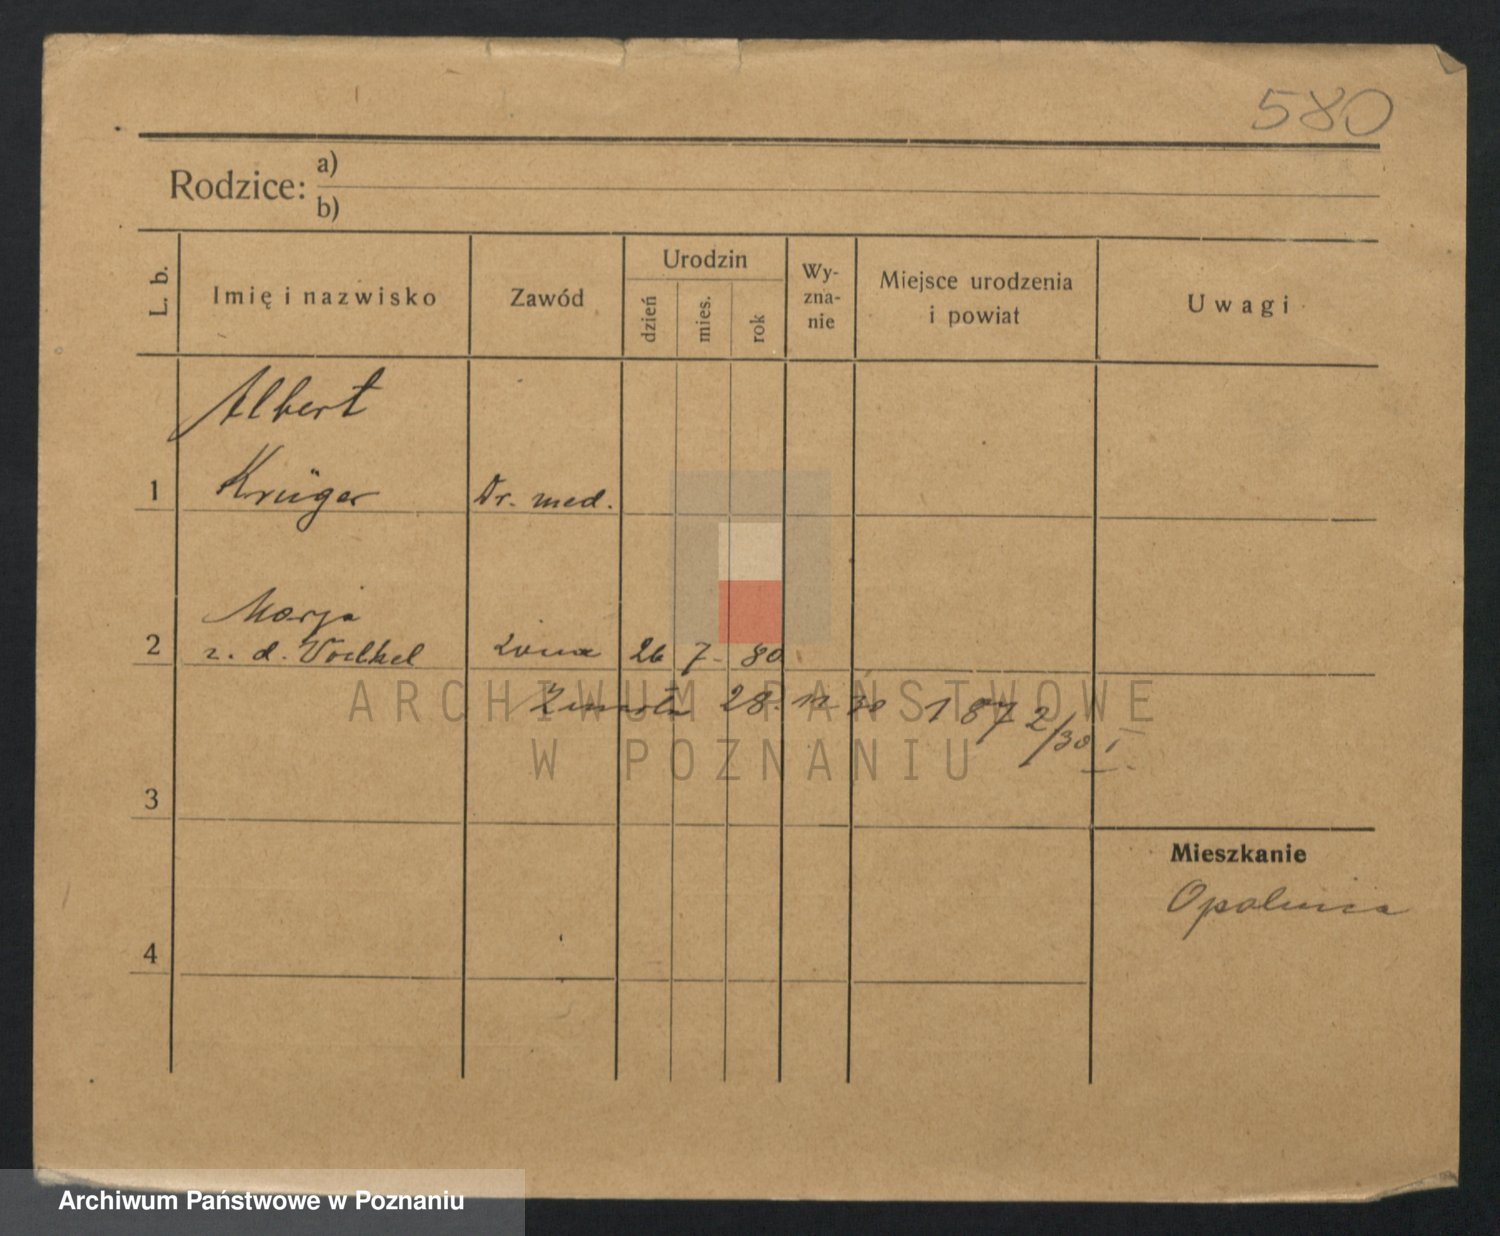 580
Rodzice: a)
b)
L. b.
Imię i nazwisko
Zawód
Urodzin
dzień
mies.
rok
Wy-
zna-
nie
Miejsce urodzenia
i powiat
Uwagi
Albert
1 Krüger Dr. med.
Marja
2 z. d. Voelkel żona 26 7. 80
Zmarła 28. 12 30 1872/30 I.
3
Mieszkanie
Opalenica
4
ARCHIWUM PAŃSTWOWE
W POZNANIU
Archiwum Państwowe w Poznaniu